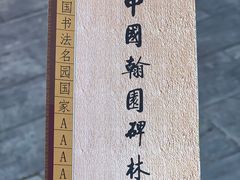 中國翰園碑林
国书法名园国家AAAA